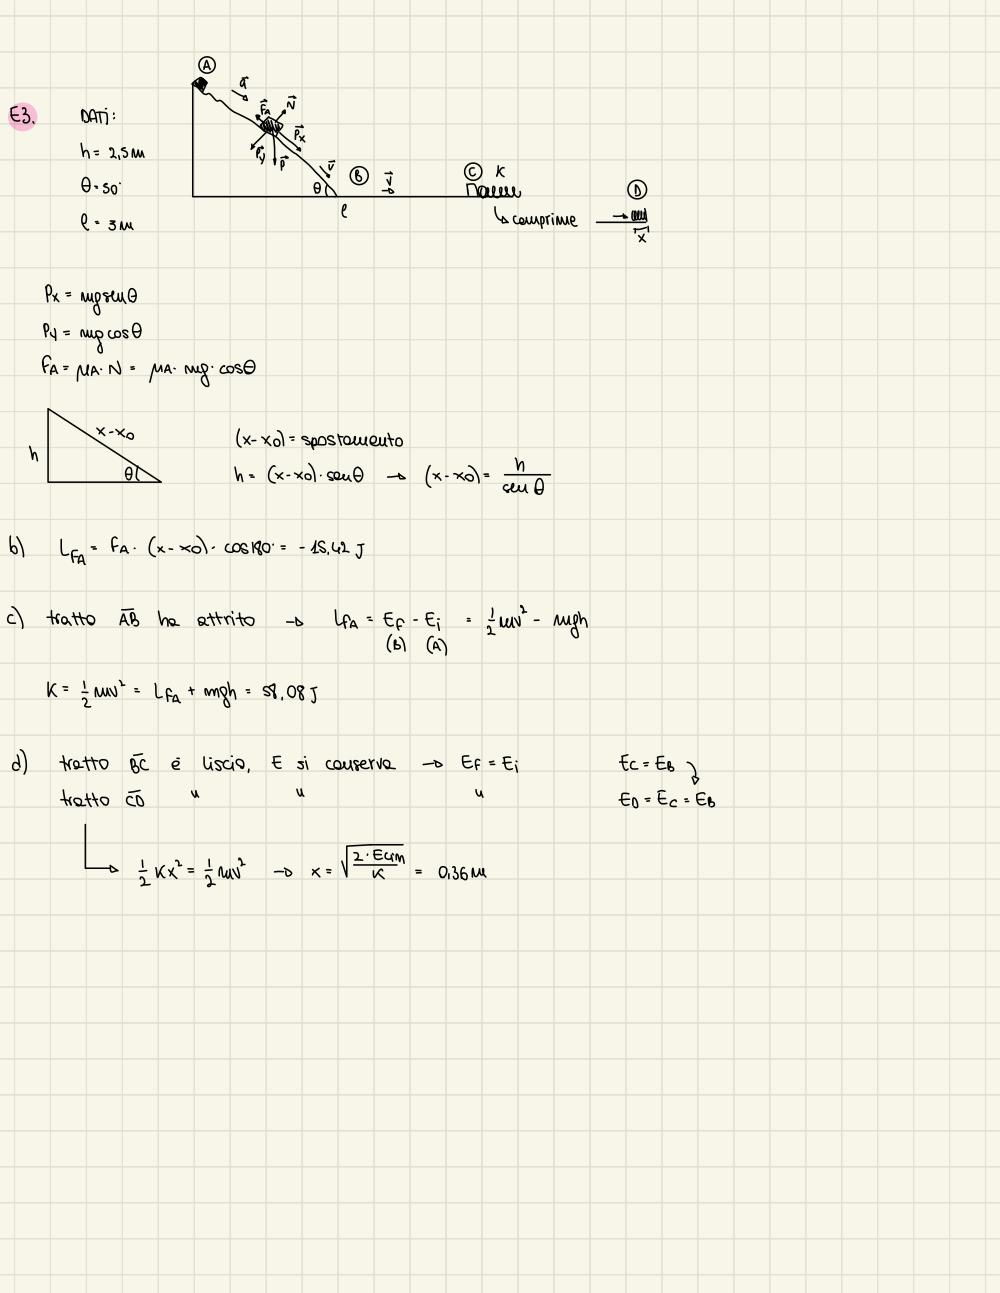 A
E3. DATI:
h = 2,5 m
θ = 50°
l = 3 m
a⃗
F⃗A N⃗
P⃗x
P⃗y P⃗ v⃗
θ B v⃗ C K D
l ↳ comprime → x
Px = mg senθ
Py = mg cosθ
FA = μA· N = μA· mg· cosθ
h x-x0 θ
(x-x0) = spostamento
h = (x-x0)· senθ → (x-x0) = h / sen θ
b) LFA = FA· (x-x0)· cos180° = -15,42 J
c) tratto A̅B̅ ha attrito → LFA = Ef - Ei = 1/2 mv² - mgh
(B) (A)
K = 1/2 mv² = LFA + mgh = 58,08 J
d) tratto B̅C̅ è liscio, E si conserva → Ef = Ei EC = EB
tratto C̅D̅ " " " ED = EC = EB
↳ 1/2 Kx² = 1/2 mv² → x = √(2· Ecin / K) = 0,36 m